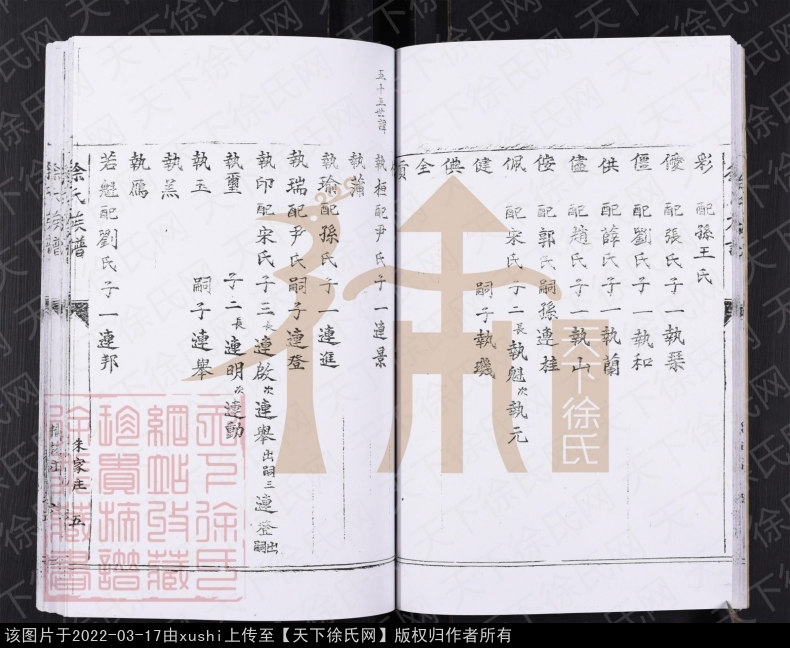 彩 配孫王氏
優 配張氏子一執琹
僵 配劉氏子一執和
供 配薛氏子一執蘭
儘 配趙氏子一執山
侒 配郭氏嗣孫連桂
佩 配宋氏子二長執魁次執元
健 嗣子執璣
供
全
五十三世諱
執桓配尹氏子一連景
執蒲
執瑜配孫氏子一連進
執瑞配尹氏嗣子連登
執印配宋氏子三長連啟次連舉出嗣三連登出嗣
執璽 子二長連明次連動
執玉 嗣子連舉
執羔
執鴈
若魁配劉氏子一連邦
徐氏族譜
朱家庄
五
天下徐氏
天下徐氏
網站收藏
珍貴族譜
天下徐氏网
该图片于2022-03-17由xushi上传至【天下徐氏网】版权归作者所有